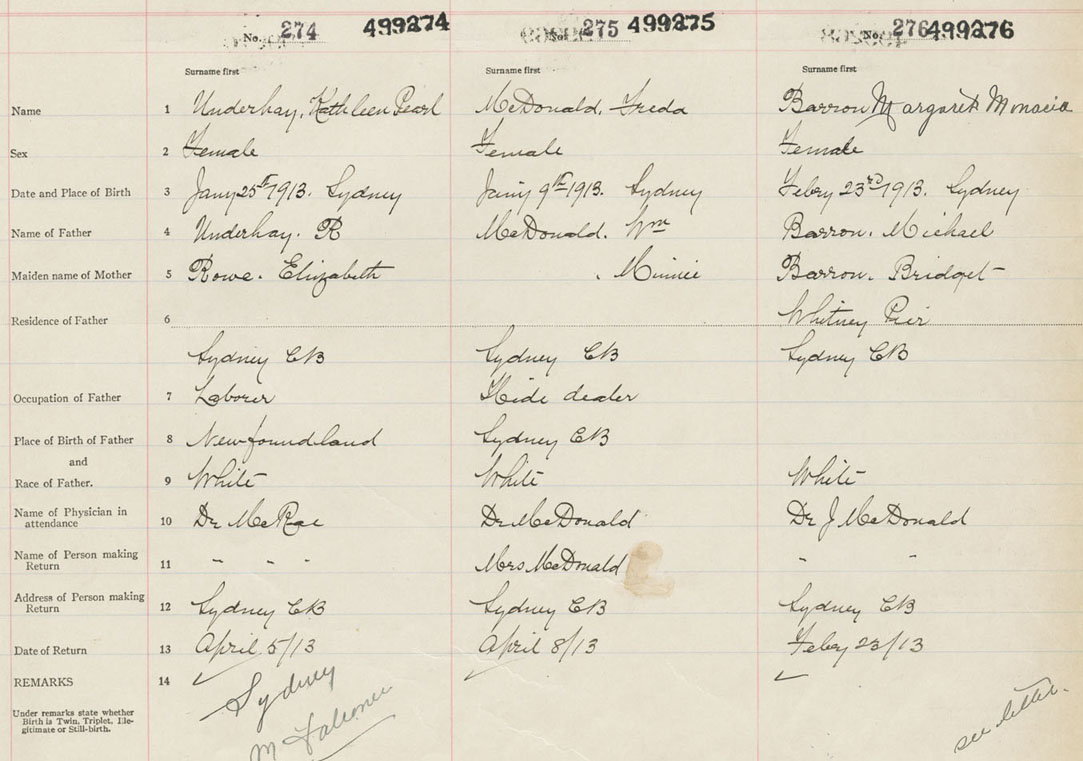 No. 274 499274 No. 275 499275 No. 276 499276
Surname first Surname first Surname first
Name 1 Underhay, Kathleen Pearl McDonald, Freda Barron Margaret Monacia
Sex 2 Female Female Female
Date and Place of Birth 3 Jany 25th 1913. Sydney Jany 9th 1913. Sydney Febry 23rd 1913. Sydney
Name of Father 4 Underhay. R McDonald. Wm Barron. Michael
Maiden name of Mother 5 Rowe. Elizabeth . Minnie Barron. Bridget
Whitney Pier
Residence of Father 6
Sydney CB Sydney CB Sydney CB
Occupation of Father 7 Laborer Hide dealer
Place of Birth of Father 8 Newfoundland Sydney CB
and
Race of Father. 9 White White White
Name of Physician in
attendance 10 Dr McRae Dr McDonald Dr J McDonald
Name of Person making
Return 11 " " " Mrs McDonald " "
Address of Person making
Return 12 Sydney CB Sydney CB Sydney CB
Date of Return 13 April 5/13 April 8/13 Feby 23/13
REMARKS 14
Sydney
Under remarks state whether
Birth is Twin, Triplet, Ille-
gitimate or Still-birth.
see letter.